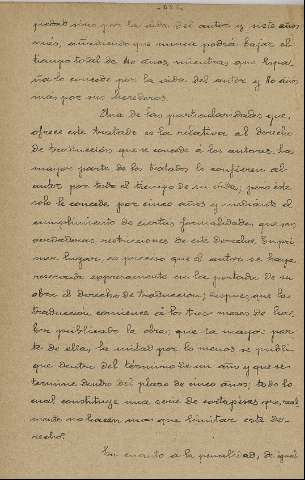 piedad sino por la vida del autor y siete años
más, añadiendo que nunca podrá bajar el
tiempo total de 40 años, mientras que Espa-
ña lo concede por la vida del autor y 80 años
mas por sus herederos.
Una de las particularidades que
ofrece este tratado es la relativa al derecho
de traducción que se concede á los autores. La
mayor parte de los tratados lo confieren al
autor por todo el tiempo de su vida, pero éste
solo le concede por cinco años y mediante el
cumplimiento de ciertas formalidades que son
verdaderas restricciones de este derecho. En pri-
mer lugar, es preciso que el autor se haya
reservado expresamente en la portada de su
obra el derecho de traducción; despues, que la
traducción comience á los tres meses de ha-
ber publicado la obra; que la mayor par-
te de ella, la mitad por lo menos se publi-
que dentro del término de un año y que se
termine dentro del plazo de cinco años; todo lo
cual constituye una serie de cortapisas que, real-
mente no hacen mas que limitar este de-
recho.
En cuanto á la penalidad, de igual